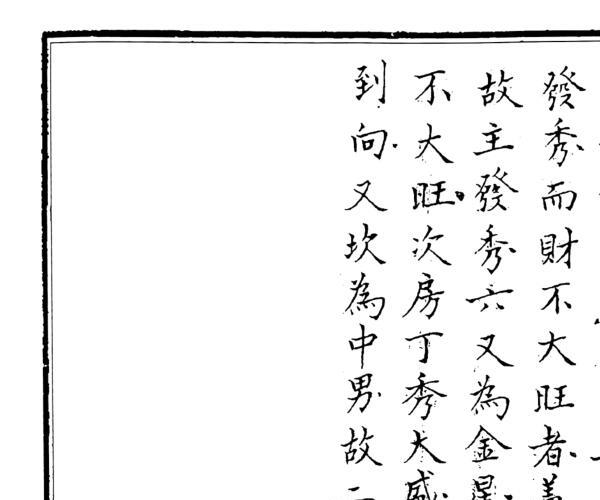 發秀而財不大旺者蓋
故主發秀六又為金星
不大旺次房丁秀大盛
到向又坎為中男故二